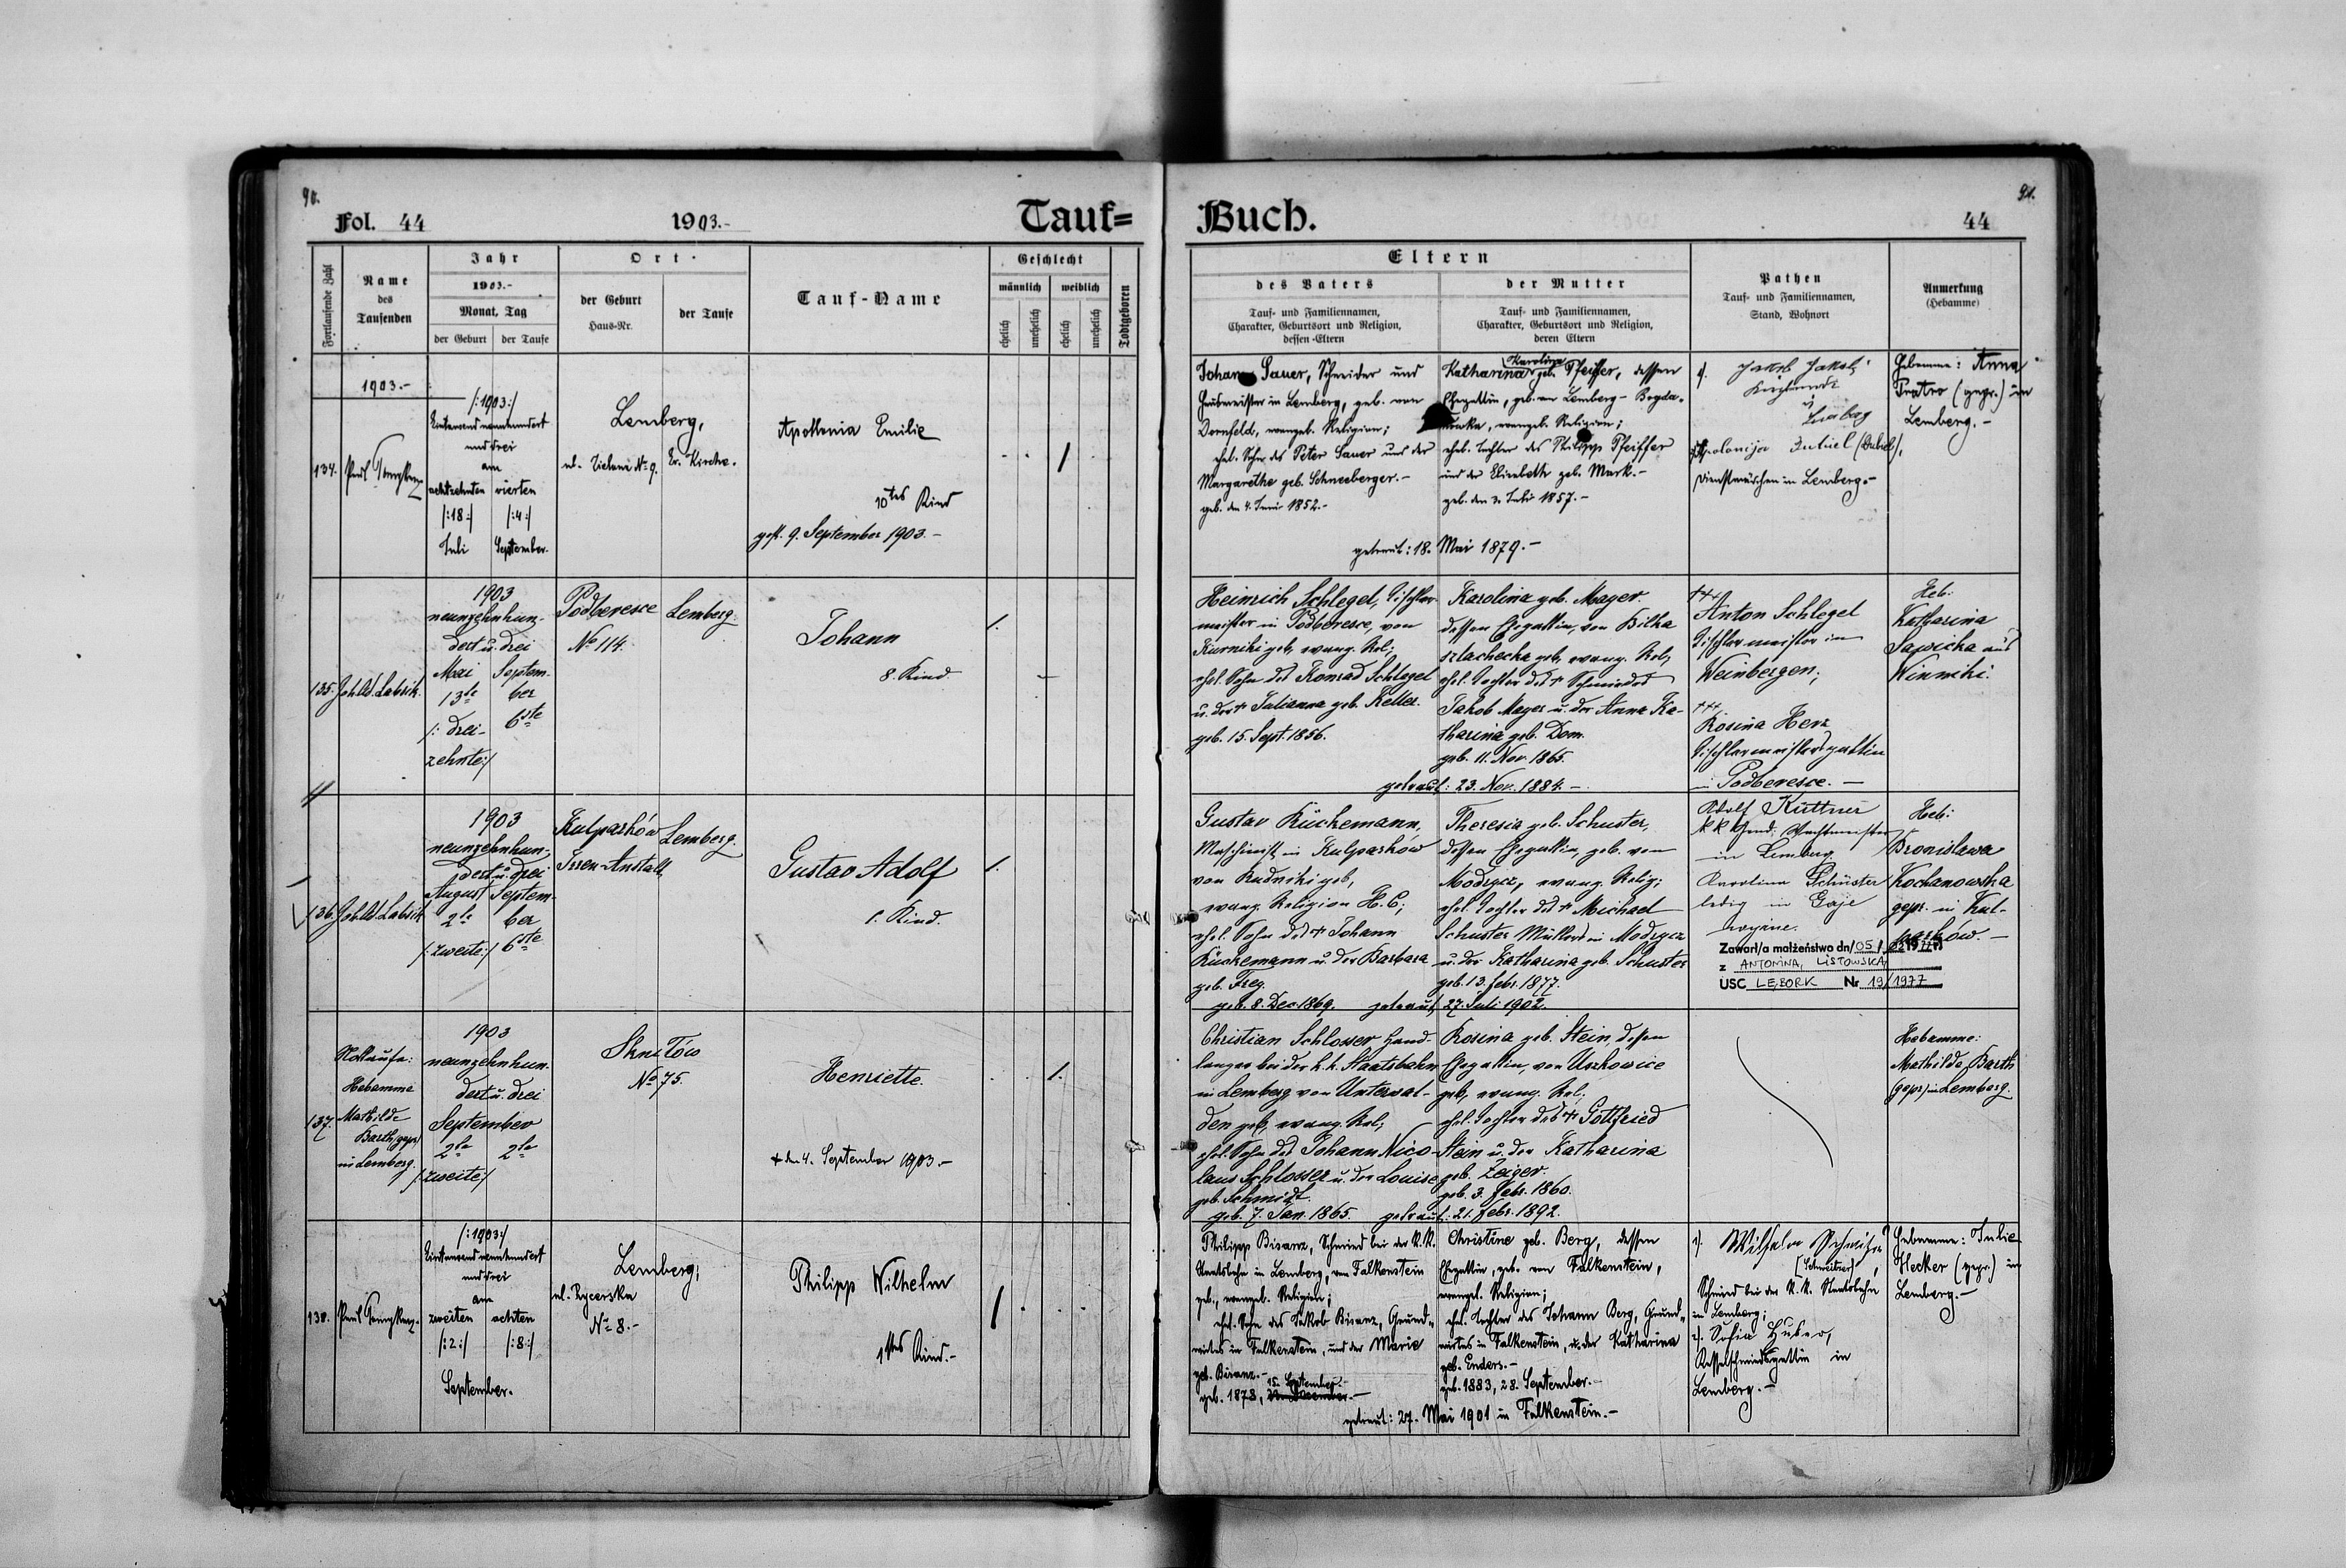 90.
Fol. 44
1903.-
Tauf=
Fortlaufende Zahl
Name
des
Taufenden
Jahr
1903.-
Monat, Tag
der Geburt
der Taufe
Ort
der Geburt
Haus-Nr.
der Taufe
Tauf-Name
Geschlecht
männlich
weiblich
ehelich
unehelich
ehelich
unehelich
Todtgeboren
1903.-
134.
Paul
/:1903:/
Eintausendneunhundert
und drei
am
achtzehnten
/:18:/
Juli
vierten
/:4:/
September.
Lemberg,
ul. Zielona No 9.
Ev. Kirche.
Apollonia Emilie
10tes Kind
gest. 9. September 1903.-
135.
1903
neunzehnhun-
dert u. drei
Mai
13te
/: drei-
zehnte:/
Septem-
ber
6ste
Podberesce
No 114.
Lemberg.
Johann
8. Kind
136.
1903
neunzehnhun-
dert u. drei
August
2te
/:zweite:/
Septem-
ber
6ste
Kulparków
Irren-Anstalt
Lemberg.
Gustav Adolf
1. Kind.
137.
Nottaufe:
Hebamme
Mathilde
Barth (gepr)
in Lemberg.
1903
neunzehnhun-
dert u. drei
September
2te
2te
/:zweite:/
Skniłów
No 75.
Henriette.
+ den 4. September 1903.-
138.
Paul
/:1903:/
Eintausendneunhundert
und drei
am
zweiten
/:2:/
achten
/:8:/
September.
Lemberg,
ul. Rycerska
No 8.-
Philipp Wilhelm
1tes Kind.-
91.
Buch.
44
Eltern
des Vaters
Tauf- und Familiennamen,
Charakter, Geburtsort und Religion,
dessen-Eltern
der Mutter
Tauf- und Familiennamen,
Charakter, Geburtsort und Religion,
deren Eltern
Pathen
Tauf- und Familiennamen,
Stand, Wohnort
Anmerkung
(Hebamme)
Johann Sauer, Schneider und
Hausmeister in Lemberg, geb. von
Dornfeld, evangel. Religion;
ehel. Sohn des Peter Sauer und der
Margarethe geb. Schneeberger.-
geb. den 4. Juni 1852.-
Karolina
Katharina geb. Pfeiffer, dessen
Ehegattin, geb. von Lemberg - Bogda-
nówka, evangel. Religion;
ehel. Tochter des Philipp Pfeiffer
und der Elisabeth geb. Mark.-
geb. den 3. Juli 1857.-
getraut: 18. Mai 1879.-
1.
Apolonija Dubiel (Dubiel),
Dienstmädchen in Lemberg.-
Hebamme: Anna
(gepr.) in
Lemberg.-
Heinrich Schlegel, Tischler-
meister in Podberesce, von
Kurniki geb, evang. Rel;
ehel. Sohn des Konrad Schlegel
u. der + Julianna geb. Keller.
geb. 15. Sept. 1856.
Karolina geb. Mayer.
dessen Ehegattin, von Bilka
szlachecka geb, evang. Rel,
ehel. Tochter des + Schmiedes
Jakob Mayer u. der Anna Ka-
tharina geb. Dom.
geb. 11. Nov. 1865.
getraut: 23. Nov. 1884.-
+++
Anton Schlegel
Tischlermeister in
Weinbergen;
+++
Rosina Herz
Tischlermeistersgattin
in Podberesce.-
Heb:
Katharina
Sawicka aus
Winniki.
Gustav Küchemann,
Maschinist in Kulparków
von Rudniki geb,
evang. Religion H. C;
ehel. Sohn des + Johann
Küchemann u. der Barbara
geb. Frey.
geb. 8. Dec. 1869.
Theresia geb. Schuster,
dessen Ehegattin, geb. von
Modrycz, evang. Relig;
ehel. Tochter des + Michael
Schuster Müllers in Modrycz
u. der Katharina geb. Schuster
geb. 13. febr. 1877.
getraut 27. Juli 1902.
Adolf Küttner
kk Gend. Wachtmeister
in Lemberg
Karolina Schuster
ledig in Gaje
Heb:
Bronislawa
Kochanowska
gepr. in Kul-
parków.-
Zawarł/a małżeństwo dn/05/
z ANTONINA, LISTOWSKA
USC LĘBORK Nr 19/1977
Christian Schlosser Hand-
langer bei der k. k. Staatsbahn
in Lemberg von Unterwal-
den geb, evang. Rel;
ehel. Sohn des Johann Nico-
laus Schlosser u. der Louise
geb. Schmidt.
geb. 7. Jan. 1865.
Rosina geb. Stein, dessen
Ehegattin, von Uszkowice
geb, evang. Rel;
ehel. Tochter des + Gottfried
Stein u. der Katharina
geb. Zeiger.
geb. 3. febr. 1860.
getraut: 21. febr. 1892.
Hebamme:
Mathilde Barth
(gepr) in Lemberg.
Philipp Bisanz, Schmied bei der K.K.
Staatsbahn in Lemberg, von Falkenstein
geb., evangel. Religion;
ehel. Sohn des Jakob Bisanz, Grund-
wirtes in Falkenstein, und der Marie
geb. Bisanz.-
15. September.-
geb. 1878,
Christine geb. Berg, dessen
Ehegattin, geb. von Falkenstein,
evangel. Religion;
ehel. Tochter des Johann Berg, Grund-
wirtes in Falkenstein, u. der Katharina
geb. Enders.-
geb. 1883, 28. September.-
getraut: 27. Mai 1901 in Falkenstein.-
1. Wilhelm
Schmied bei der K.K. Staatsbahn
in Lemberg;
2. Sofia Huber,
Kesselschmiedsgattin in
Lemberg.-
Hebamme: Julie
Hecker (gepr.) in
Lemberg.-